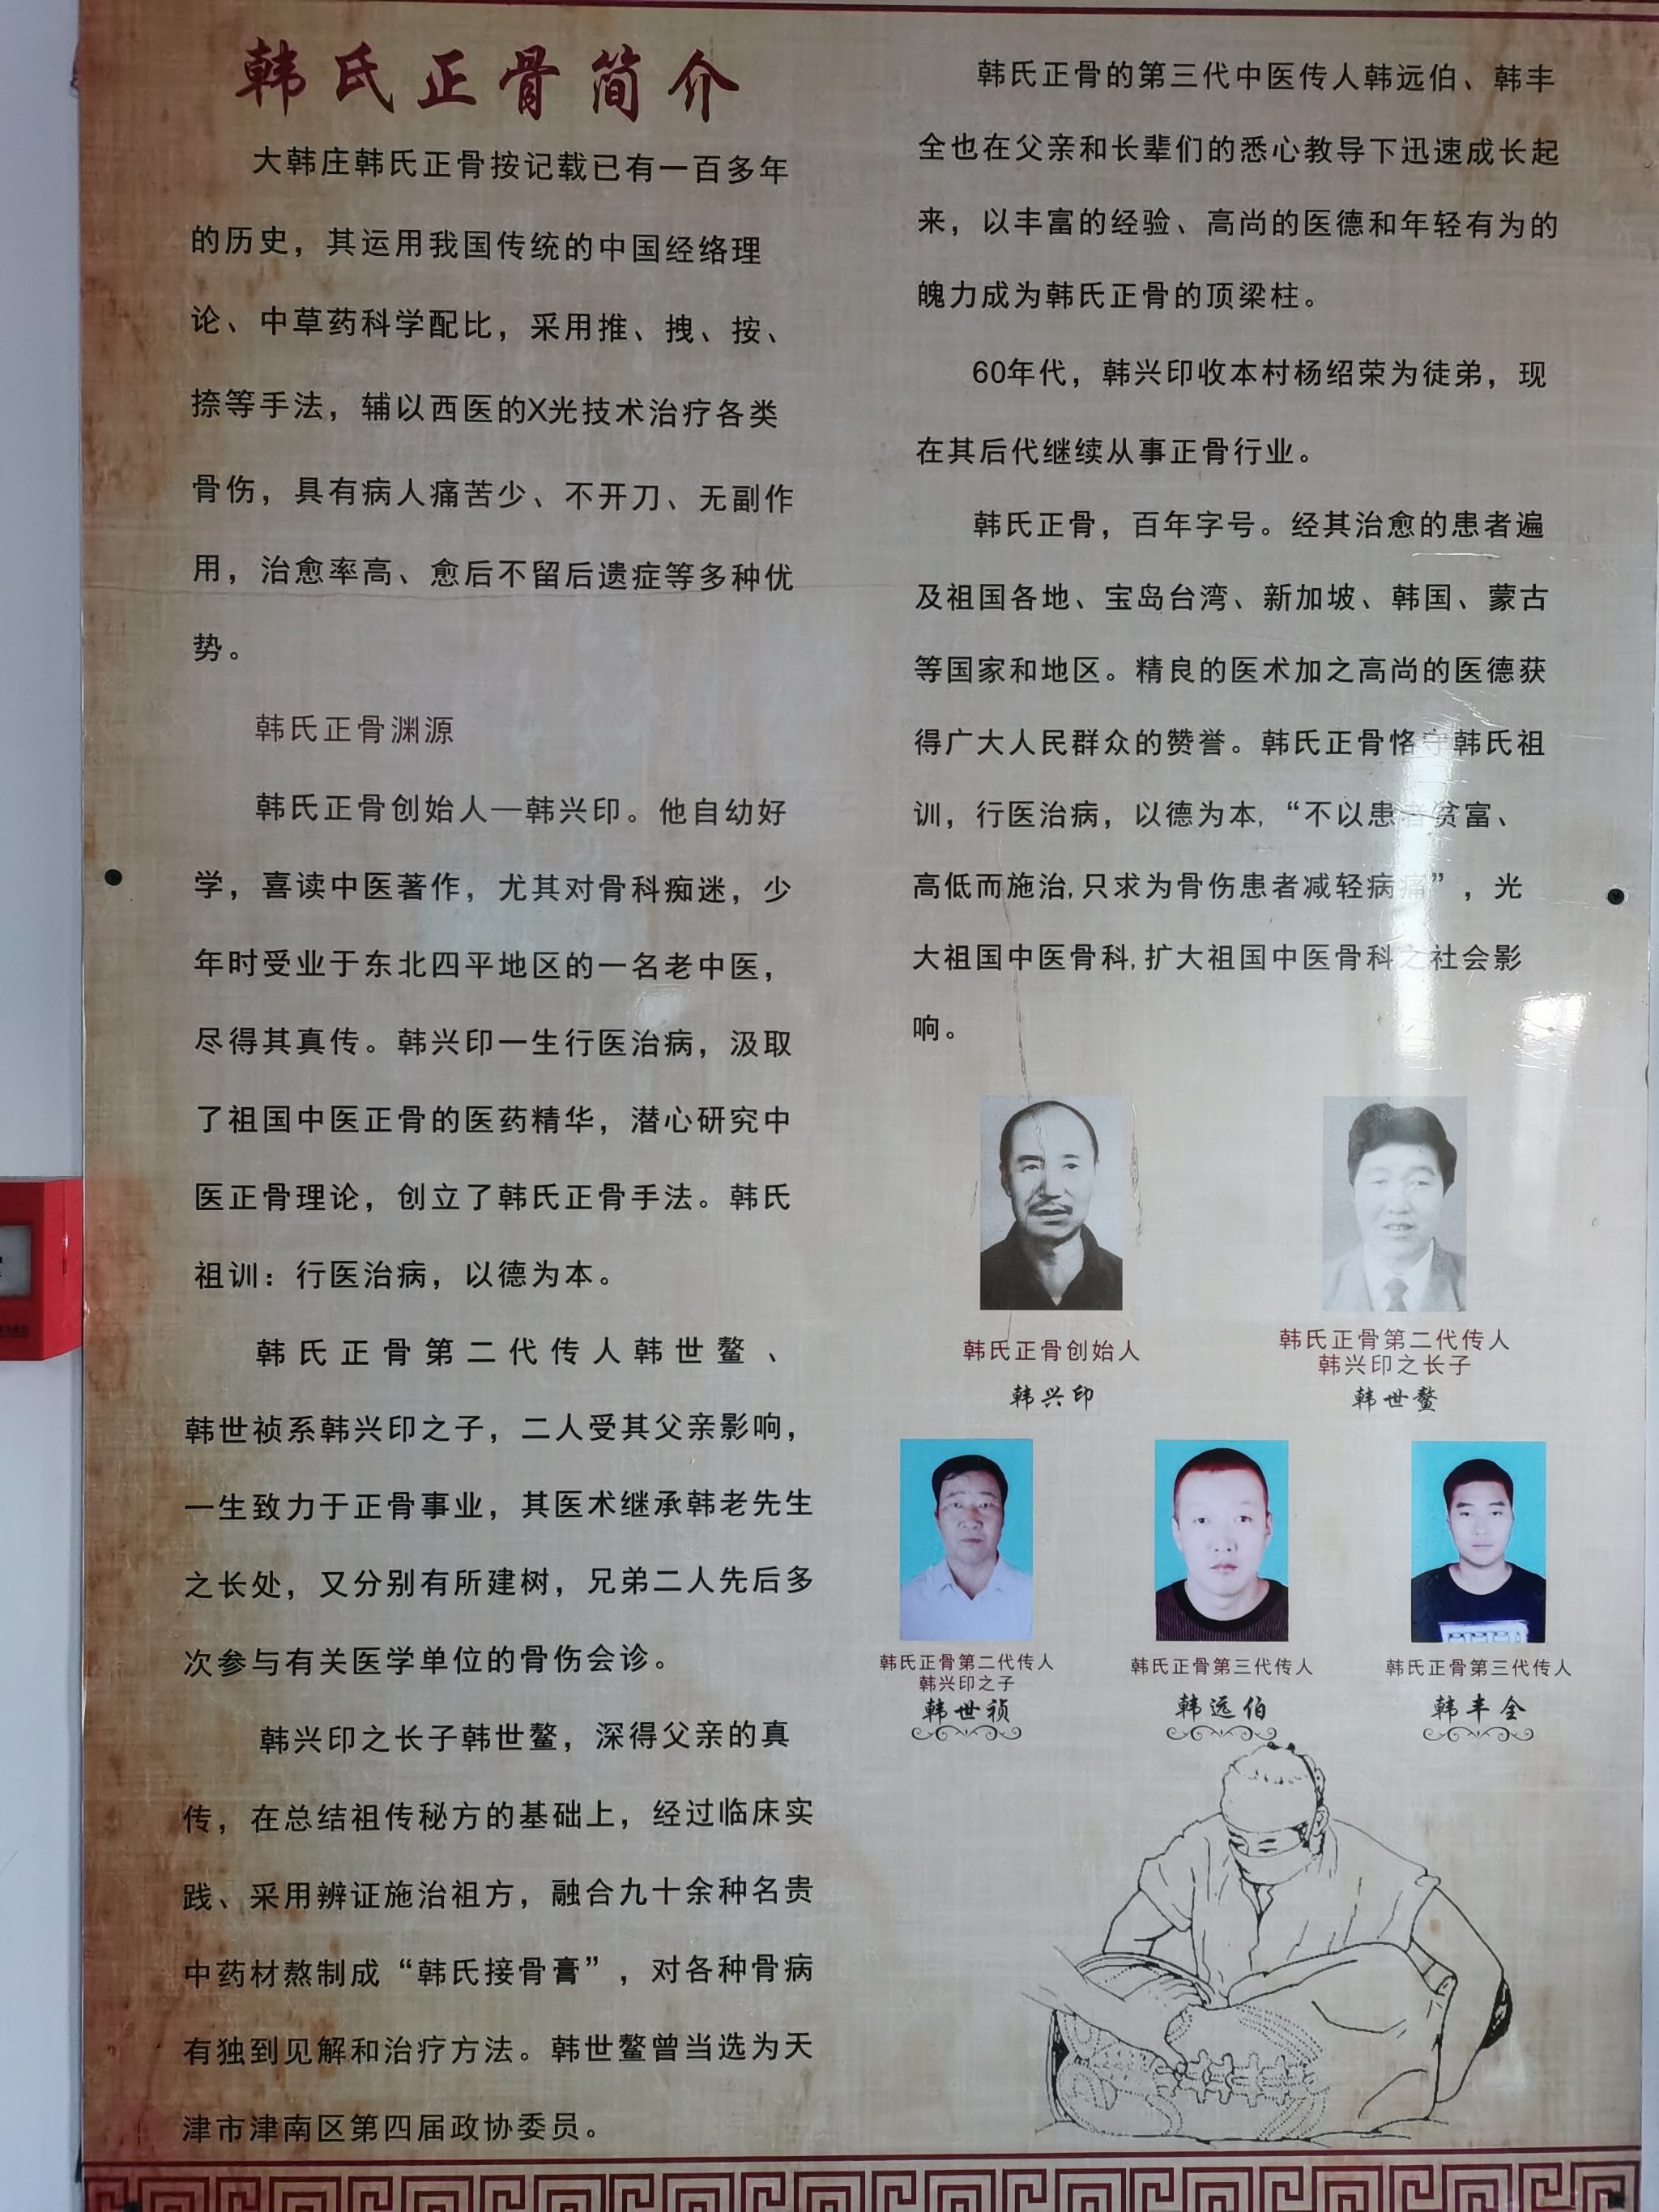 韩氏正骨简介
大韩庄韩氏正骨按记载已有一百多年
的历史，其运用我国传统的中国经络理
论、中草药科学配比，采用推、拽、按、
捺等手法，辅以西医的X光技术治疗各类
骨伤，具有病人痛苦少、不开刀、无副作
用，治愈率高、愈后不留后遗症等多种优
势。
韩氏正骨渊源
韩氏正骨创始人—韩兴印。他自幼好
学，喜读中医著作，尤其对骨科痴迷，少
年时受业于东北四平地区的一名老中医，
尽得其真传。韩兴印一生行医治病，汲取
了祖国中医正骨的医药精华，潜心研究中
医正骨理论，创立了韩氏正骨手法。韩氏
祖训：行医治病，以德为本。
韩氏正骨第二代传人韩世鳌、
韩世祯系韩兴印之子，二人受其父亲影响，
一生致力于正骨事业，其医术继承韩老先生
之长处，又分别有所建树，兄弟二人先后多
次参与有关医学单位的骨伤会诊。
韩兴印之长子韩世鳌，深得父亲的真
传，在总结祖传秘方的基础上，经过临床实
践、采用辨证施治祖方，融合九十余种名贵
中药材熬制成“韩氏接骨膏”，对各种骨病
有独到见解和治疗方法。韩世鳌曾当选为天
津市津南区第四届政协委员。
韩氏正骨的第三代中医传人韩远伯、韩丰
全也在父亲和长辈们的悉心教导下迅速成长起
来，以丰富的经验、高尚的医德和年轻有为的
魄力成为韩氏正骨的顶梁柱。
60年代，韩兴印收本村杨绍荣为徒弟，现
在其后代继续从事正骨行业。
韩氏正骨，百年字号。经其治愈的患者遍
及祖国各地、宝岛台湾、新加坡、韩国、蒙古
等国家和地区。精良的医术加之高尚的医德获
得广大人民群众的赞誉。韩氏正骨恪守韩氏祖
训，行医治病，以德为本，“不以患者贫富、
高低而施治，只求为骨伤患者减轻病痛”，光
大祖国中医骨科，扩大祖国中医骨科之社会影
响。
韩氏正骨创始人
韩兴印
韩氏正骨第二代传人
韩兴印之长子
韩世鳌
韩氏正骨第二代传人
韩兴印之子
韩世祯
韩氏正骨第三代传人
韩远伯
韩氏正骨第三代传人
韩丰全